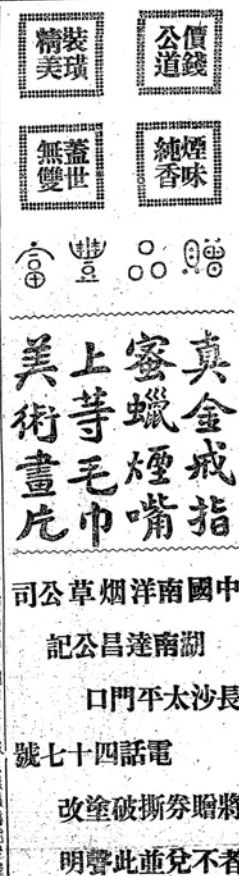 價錢公道
裝璜精美
煙味純香
蓋世無雙
贈品豐富
真金戒指
蜜蠟煙嘴
上等毛巾
美術畫片
中國南洋烟草公司
湖南達昌公記
長沙太平門口
電話四十七號
將贈券撕破塗改
者不兌並此聲明